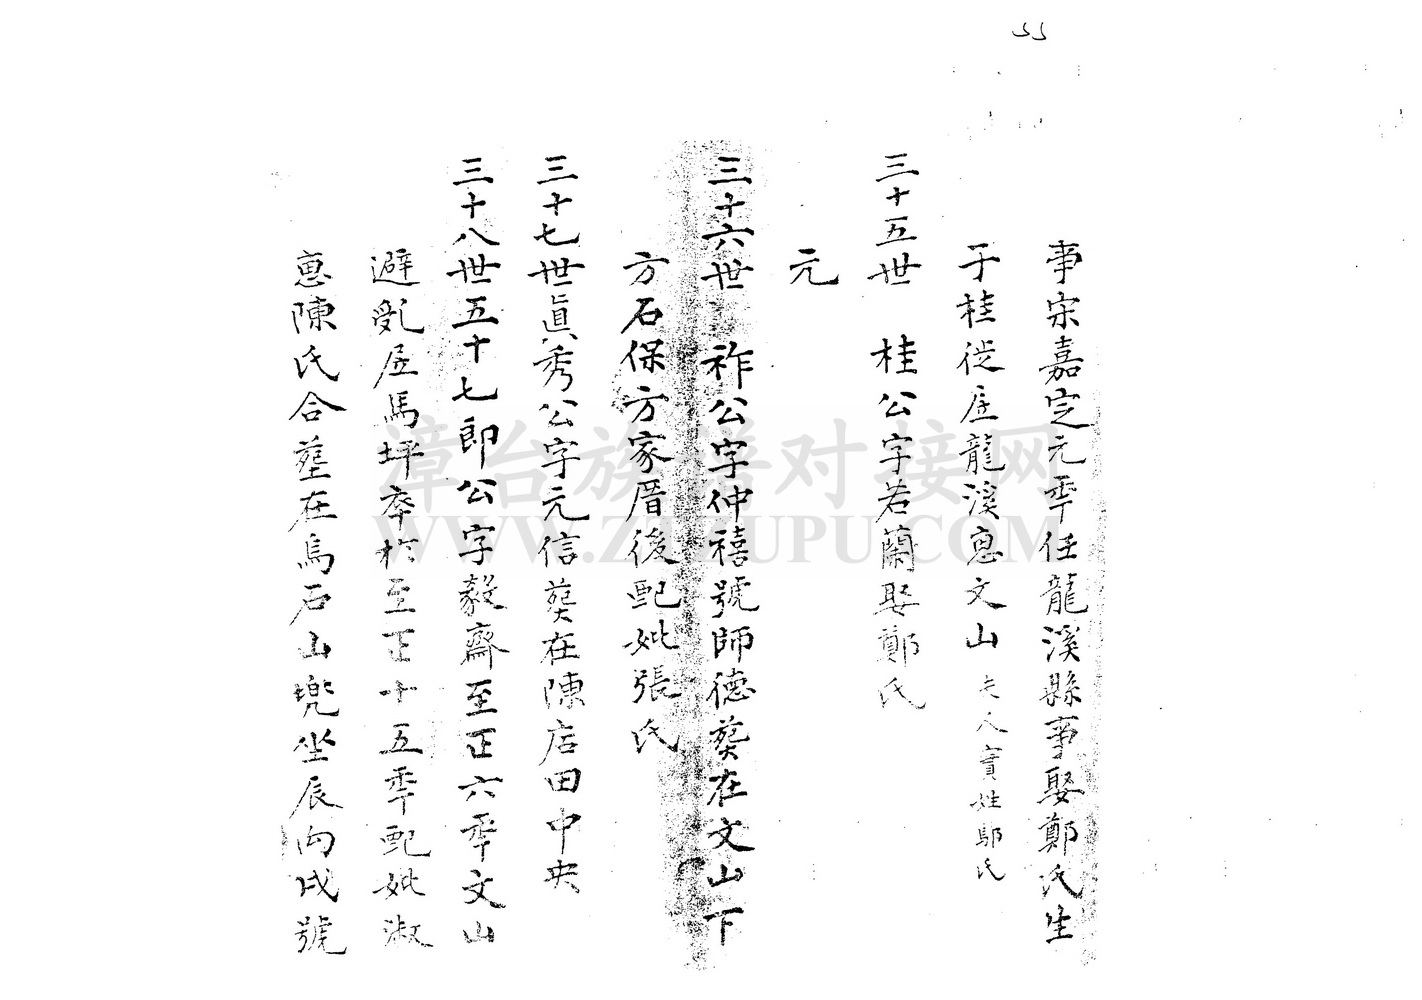 事宋嘉定元年任龍溪縣事娶鄭氏生
子桂徙居龍溪惠文山夫人實姓鄔氏
三十五世 桂公字若蘭娶鄭氏
元
三十六世 祚公字仲禧號師德葬在文山下
方石保方家厝後配妣張氏
三十七世真秀公字元信葬在陳店田中央
三十八世五十七郎公字毅齋至正六年文山
避亂居馬坪卒於至正十五年配妣淑
惠陳氏合塟在烏石山兜坐辰向戌號
漳台族谱对接网
WWW.ZTZUPU.COM